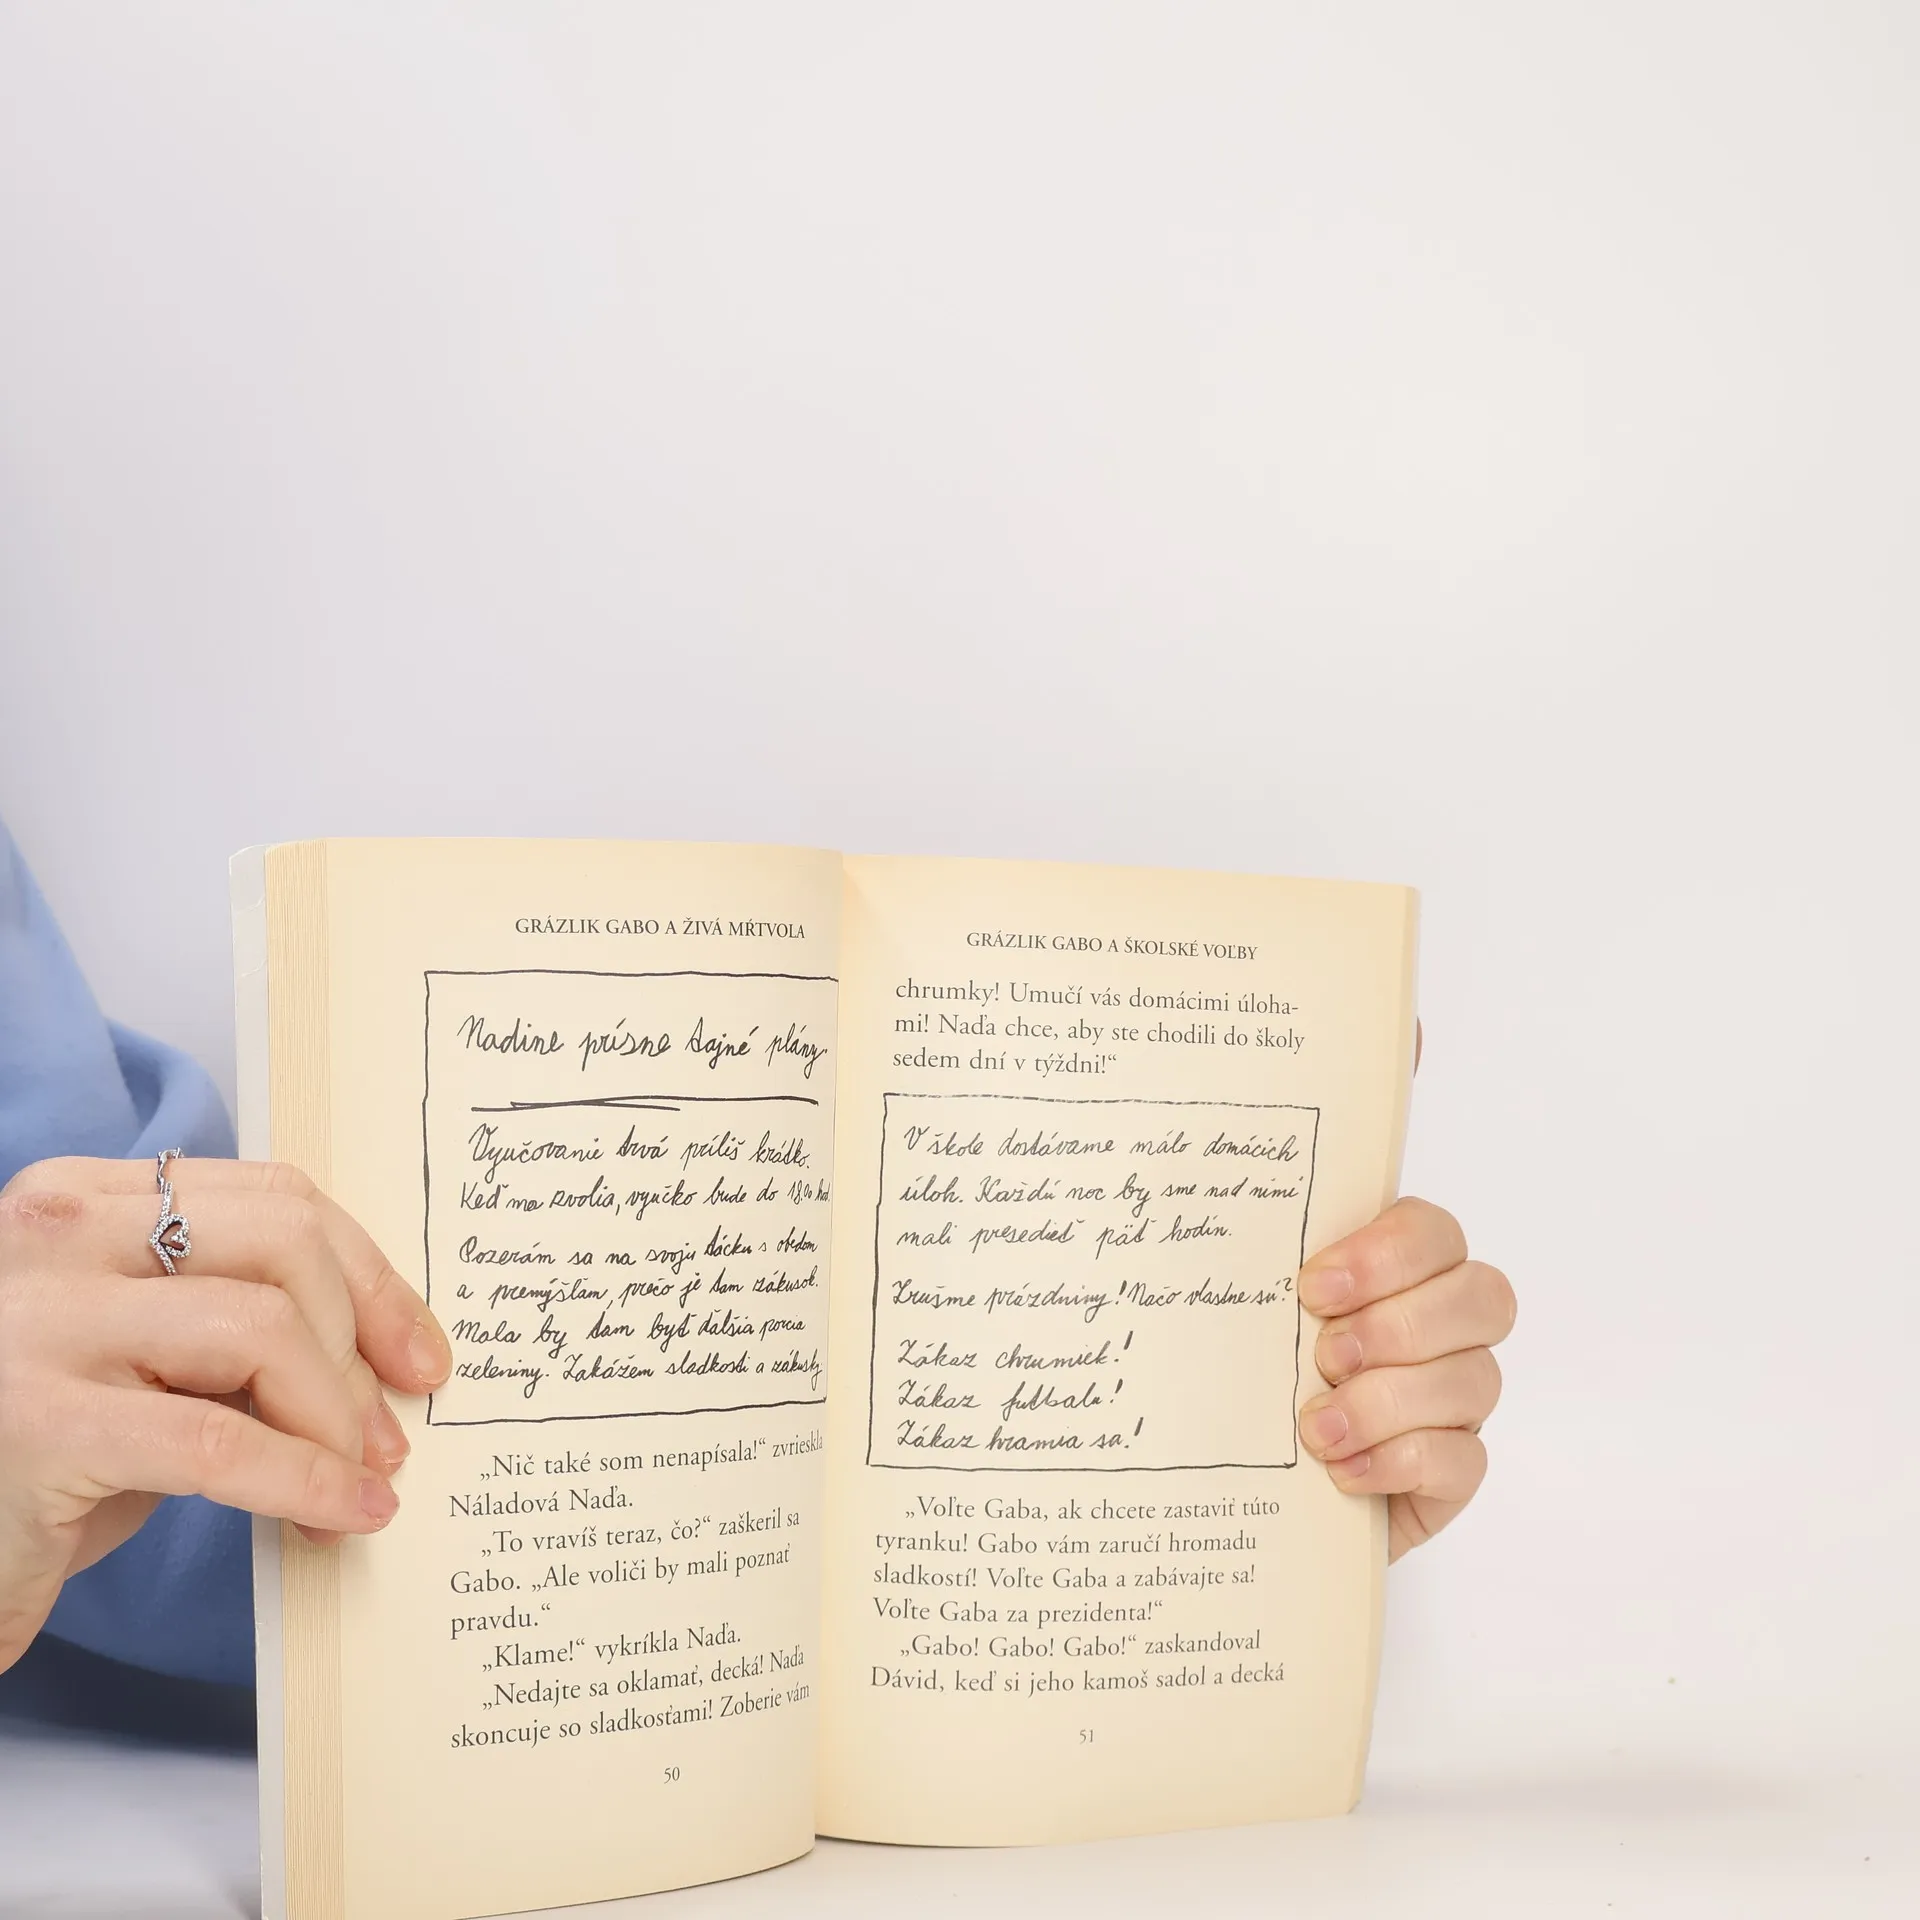 GRÁZLIK GABO A ŽIVÁ MŔTVOLA
Nadine prísne tajné plány
Vyučovanie trvá príliš krátko.
Keď ma zvolia, vyučko bude do 18.00 hod.
Pozerám sa na svoju tácku s obedom
a premýšľam, prečo je tam zákusok.
Mala by tam byť ďalšia porcia
zeleniny. Zakážem sladkosti a zákusky.
„Nič také som nenapísala!“ zvrieskla
Náladová Naďa.
„To vravíš teraz, čo?“ zaškeril sa
Gabo. „Ale voliči by mali poznať
pravdu.“
„Klame!“ vykríkla Naďa.
„Nedajte sa oklamať, decká! Naďa
skoncuje so sladkosťami! Zoberie vám
50
GRÁZLIK GABO A ŠKOLSKÉ VOĽBY
chrumky! Umučí vás domácimi úloha-
mi! Naďa chce, aby ste chodili do školy
sedem dní v týždni!“
V škole dostávame málo domácich
úloh. Každú noc by sme nad nimi
mali presedieť päť hodín.
Zrušme prázdniny! Načo vlastne sú?
Zákaz chrumiek!
Zákaz futbalu!
Zákaz hrania sa!
„Voľte Gaba, ak chcete zastaviť túto
tyranku! Gabo vám zaručí hromadu
sladkostí! Voľte Gaba a zabávajte sa!
Voľte Gaba za prezidenta!“
„Gabo! Gabo! Gabo!“ zaskandoval
Dávid, keď si jeho kamoš sadol a decká
51